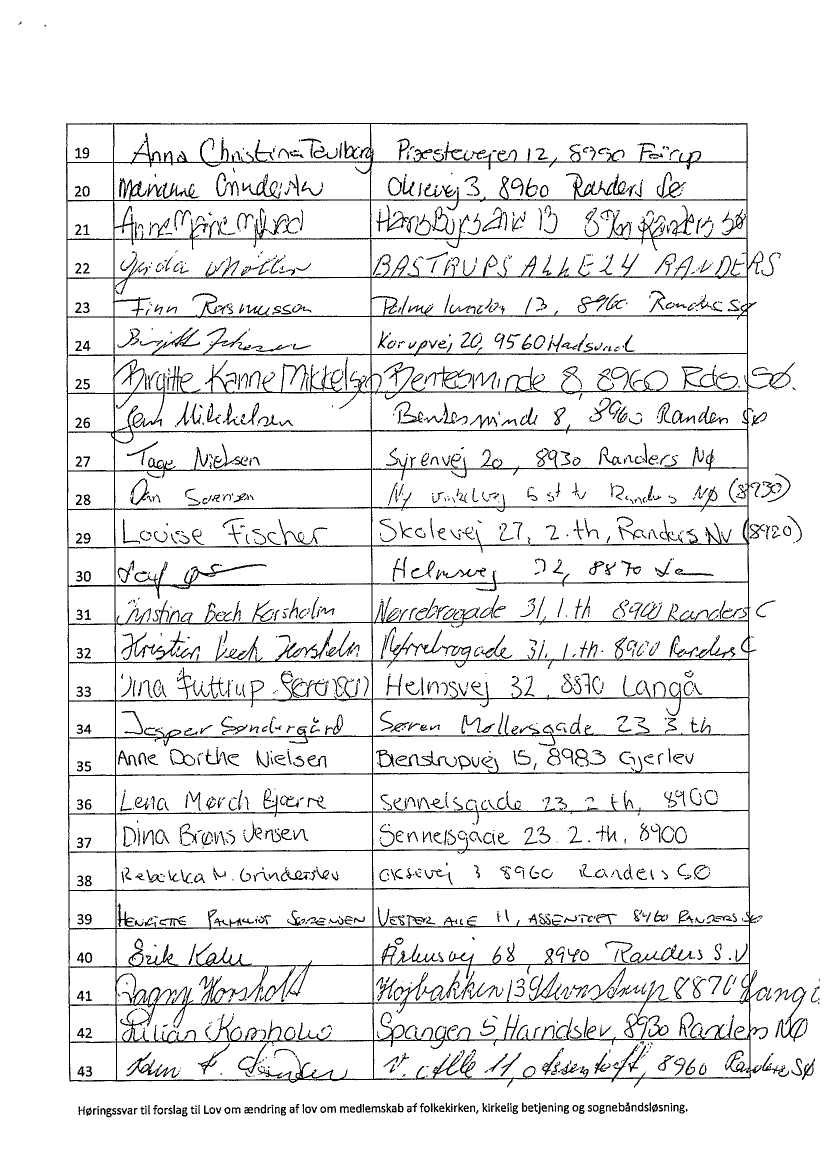 19 Anna Christina Taulborg Præstevejen 12, 8990 Fårup
20 Marianne Oksevej 3, 8960 Randers SØ
21 Anne Marie 13 Randers SØ
22 Møller BASTRUPS ALLE 24 RANDERS
23 Finn Rasmussen Palmelunden 13, 8960 Randers SØ
24 Korupvej 20, 9560 Hadsund
25 Birgitte Kanne Mikkelsen Bentesminde 8, 8960 Rds. SØ.
26 Mikkelsen Bentesminde 8, 8960 Randers SØ
27 Tage Nielsen Syrenvej 20, 8930 Randers NØ
28 Sørensen Ny 5 st tv Randers NØ (8930)
29 Louise Fischer Skolevej 27, 2. th, Randers NV (8920)
30 Helmsvej 32, 8870
31 Christina Bech Korsholm Nørrebrogade 31, 1. th 8900 Randers C
32 Kristian Bech Korsholm Nørrebrogade 31, 1. th. 8900 Randers C
33 Futtrup Sørensen Helmsvej 32, 8870 Langå
34 Jesper Søndergård Søren Møllersgade 23 3 th
35 Anne Dorthe Nielsen Blenstrupvej 15, 8983 Gjerlev
36 Lena Mørch Bjerre Sennelsgade 23, 2 th, 8900
37 Dina Brøns Jensen Sennelsgade 23. 2. th, 8900
38 Rebekka M. Grinderslev Oksevej 3 8960 Randers SØ
39 HENRIETTE PALMQVIST SØRENSEN VESTER ALLE 11, ASSENTOFT 8960 RANDERS SØ
40 Erik Århusvej 68, 8940 Randers S.V
41 Dagny Korsholt Højbakken 13 8870 Langå
42 Lilian Korsholm Spangen 5, Harridslev, 8930 Randers NØ
43 V. Alle 11, Assentoft, 8960 Randers SØ
Høringssvar til forslag til Lov om ændring af lov om medlemskab af folkekirken, kirkelig betjening og sognebåndsløsning.